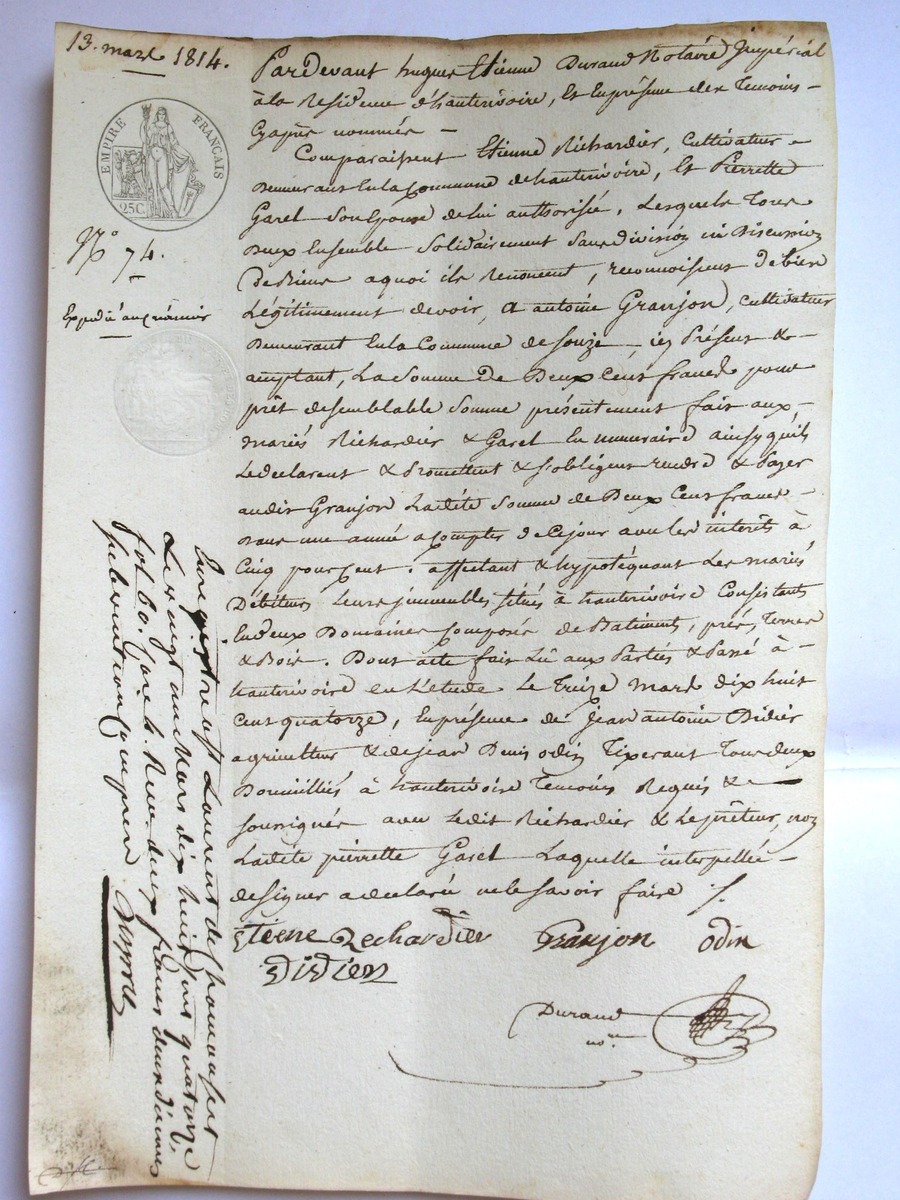 13. mars 1814.
EMPIRE FRANÇAIS
25C.
N° 74.
Expedié au créancier
Pardevant hugues Etienne Durand Notaire Impérial
à la Residence d'hauterivoire, Et En présence des Temoins
Cyaprès nommés
Comparaissent Etienne Richardier, Cultivateur
Demeurant En la Commune de hauterivoire, Et Pierrette
Garel Son Epouse de lui authorisée, Lesquels Tous
Deux Ensemble Solidairement Sans division ni Discussion
De Biens aquoi ils Renoncent, reconnoissent de bien
Légitimement devoir, a antoine Granjon, cultivateur
Demeurant En la Commune de Souzé, icy Présent &
acceptant, La Somme De Deux Cent francs pour
prêt desemblable Somme présentement fait aux
mariés Richardier & Garel En numeraire ainsy quils
Le declarent & Promettent & s'obligent rendre & Payer
audit Granjon Ladite Somme de Deux Cent francs
Dans une année a Compter de Ce jour avec les interêts à
Cinq pour Cent. affectant & hypotéquant Les mariés
Débiteurs Leurs jmmeubles Situés à hauterivoire Consistants
En deux Domaines Composés de Batiments, prés, Terres
& Bois. Dont acte fait Lû aux Parties & Passé à
hauterivoire en L'etude Le Treize mars dix huit
Cent quatorze, En présence de Jean antoine Didier
agriculteur & de jean Denis odin Tixerant Tous deux
Domicilliés à hauterivoire Temoins Requis &
Soussignés avec Ledit Richardier & Le prêteur, non
Ladite pierrette Garel Laquelle interpellée
de signer a déclaré ne le Savoir faire
Etiene Rechardier Granjon odin
Didier
Durand
nore.
Enregistré a St Laurent de chamousset
Le vingt un Mars dix huit cent quatorze,
fol. 60. Case 4. Reçu deux francs deux décimes
Subvention Comprise